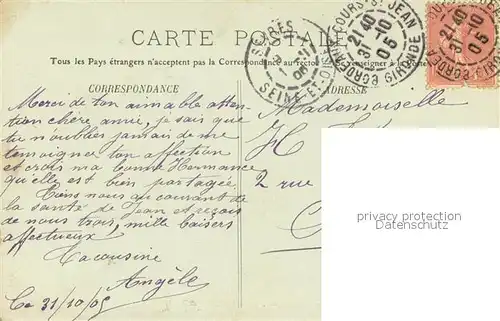 CARTE POSTALE
Tous les Pays étrangers n'acceptent pas la Correspondance au recto
renseigner à la Poste
CORRESPONDANCE
ADRESSE
SEINE-ET-OISE
BORDEAUX COURS St JEAN
GIRONDE
21 40
31-10
05
Mademoiselle
H
2 rue
Merci de ton aimable atten-
tion chère amie, je sais que
tu n'oublies jamais de me
témoigner ton affection
et crois ma bonne Hermance
qu'elle est bien partagée
Tiens nous au courant de
la santé de Jean et reçois
de nous trois, mille baisers
affectueux
Ta cousine
Angèle
Ce 31/10/05
privacy protection
Datenschutz